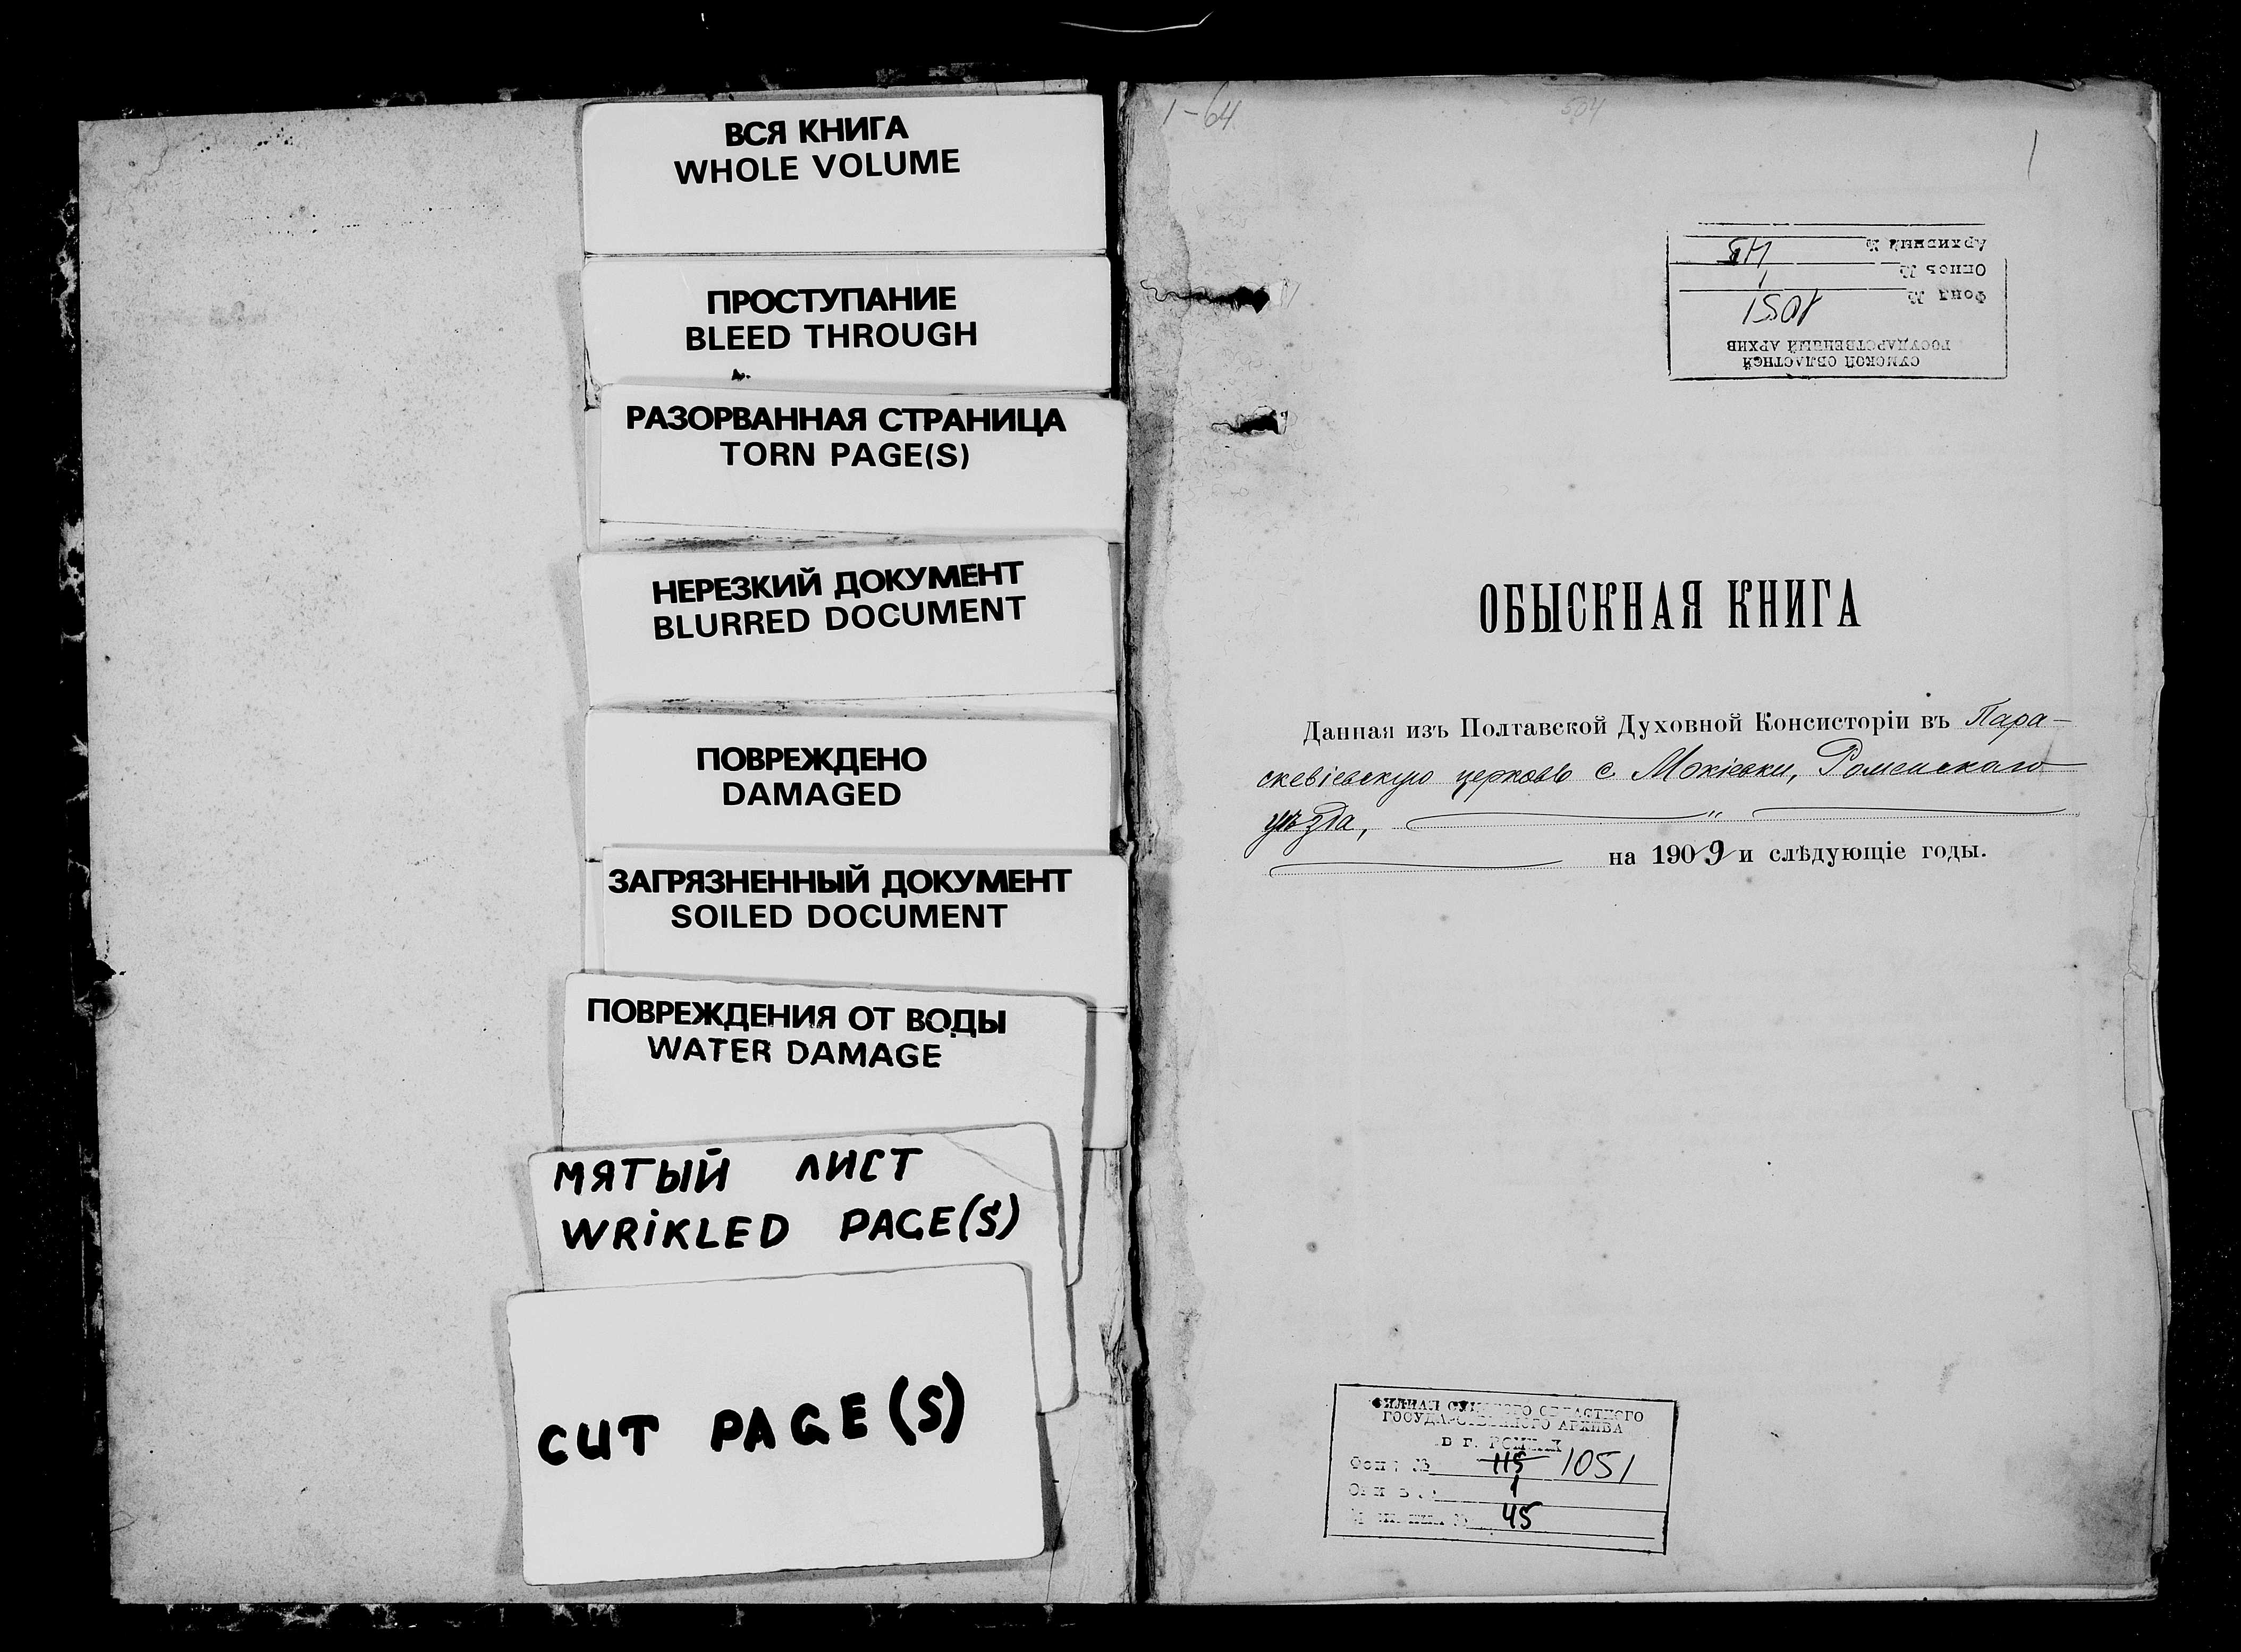 ВСЯ КНИГА
WHOLE VOLUME
ПРОСТУПАНИЕ
BLEED THROUGH
РАЗОРВАННАЯ СТРАНИЦА
TORN PAGE(S)
НЕРЕЗКИЙ ДОКУМЕНТ
BLURRED DOCUMENT
ПОВРЕЖДЕНО
DAMAGED
ЗАГРЯЗНЕННЫЙ ДОКУМЕНТ
SOILED DOCUMENT
ПОВРЕЖДЕНИЯ ОТ ВОДЫ
WATER DAMAGE
МЯТЫЙ ЛИСТ
WRIKLED PAGE(S)
CUT PAGE(S)
1-64
504
1
СУМСКОЙ ОБЛАСТНОЙ
ГОСУДАРСТВЕННЫЙ АРХИВ
Фонд № 1051
Опись № 1
Архивный № 45
ОБЫСКНАЯ КНИГА
Данная изъ Полтавской Духовной Консисторіи въ Пара-
скевіевскую церковь с. Мокіевки, Роменскаго
уѣзда, "
на 1909 и слѣдующіе годы.
ФИЛИАЛ СУМСКОГО ОБЛАСТНОГО
ГОСУДАРСТВЕННОГО АРХИВА
В Г. РОМНАХ
Фонд № 115 1051
Опись № 1
45